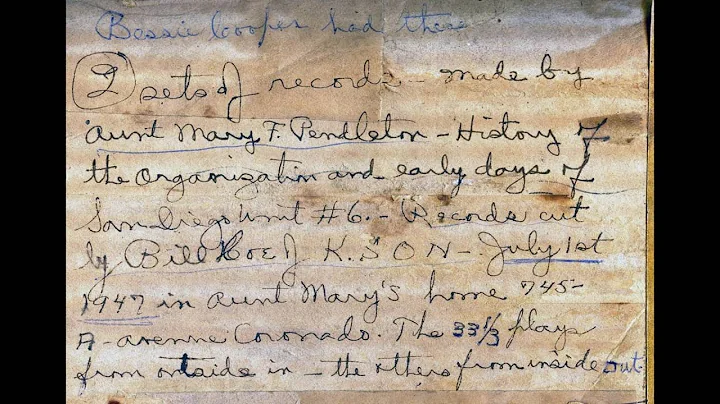 Bessie Cooper had these
2 sets of records - made by
Aunt Mary F. Pendleton - History of
the Organization and early days of
San Diego Unit #6. - Records cut
by Bill Hoe of K.S O N - July 1st
1947 in Aunt Mary's home 745-
A-avenue Coronado. The 33 1/3 plays
from outside in - the others from inside out.